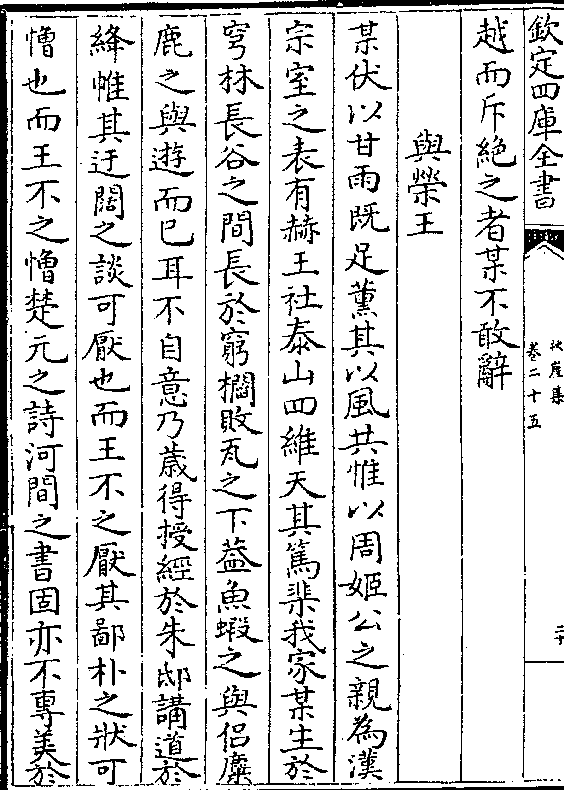 欽定四庫全書
卷二十五
越而斥絶之者某不敢辭
與榮王
某伏以甘雨既足薰其以風共惟以周姬公之親為漢
宗室之表有赫王社泰山四維天其篤棐我家某生於
穹林長谷之間長於窮櫩敗瓦之下葢魚蝦之與侣麋
鹿之與遊而已耳不自意乃嵗得授經於朱邸講道於
絳帷其迂闊之談可厭也而王不之厭其鄙朴之狀可
憎也而王不之憎楚元之詩河間之書固亦不專美於